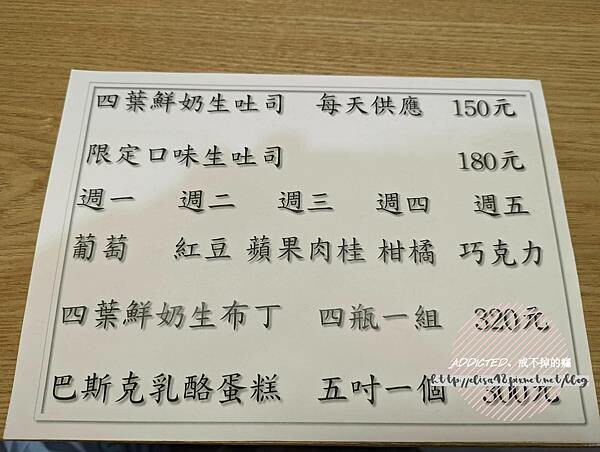 四葉鮮奶生吐司 每天供應 150元
限定口味生吐司 180元
週一 週二 週三 週四 週五
葡萄 紅豆 蘋果肉桂 柑橘 巧克力
四葉鮮奶生布丁 四瓶一組 320元
ADDICTED、戒不掉的癮
http://elisa98.pixnet.net/blog
巴斯克乳酪蛋糕 五吋一個 300元